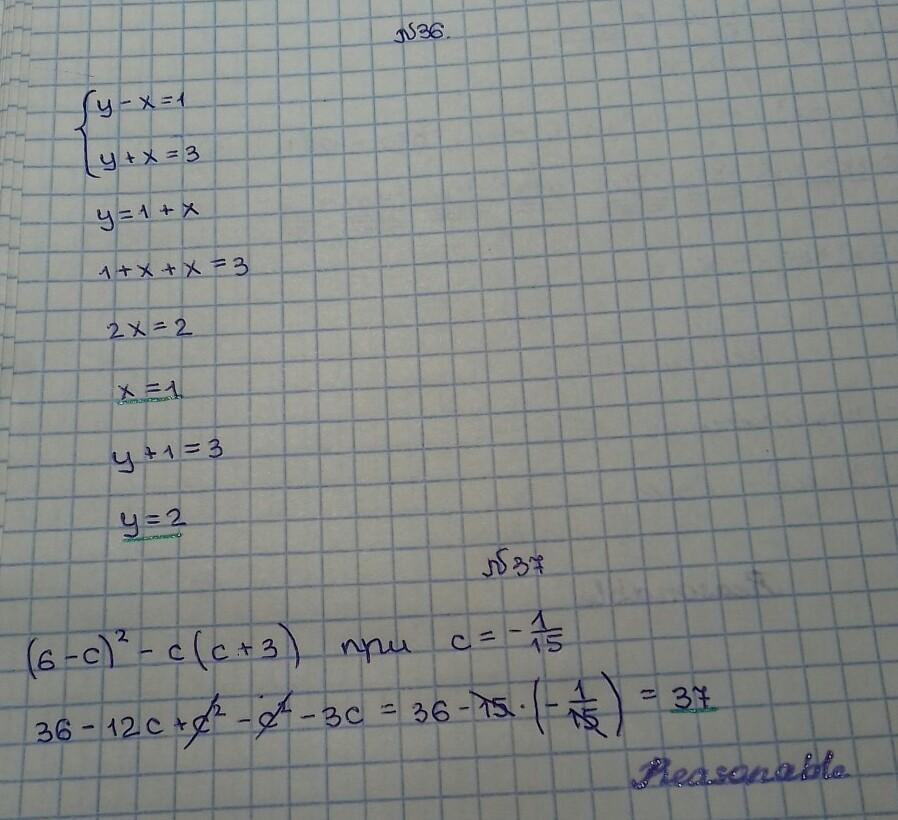 №36.
y - x = 1
y + x = 3
y = 1 + x
1 + x + x = 3
2x = 2
x = 1
y + 1 = 3
y = 2
№37
(6 - c)² - c(c + 3) при c = -1/15
36 - 12c + c² - c² - 3c = 36 - 15 · (-1/15) = 37
Reasonable